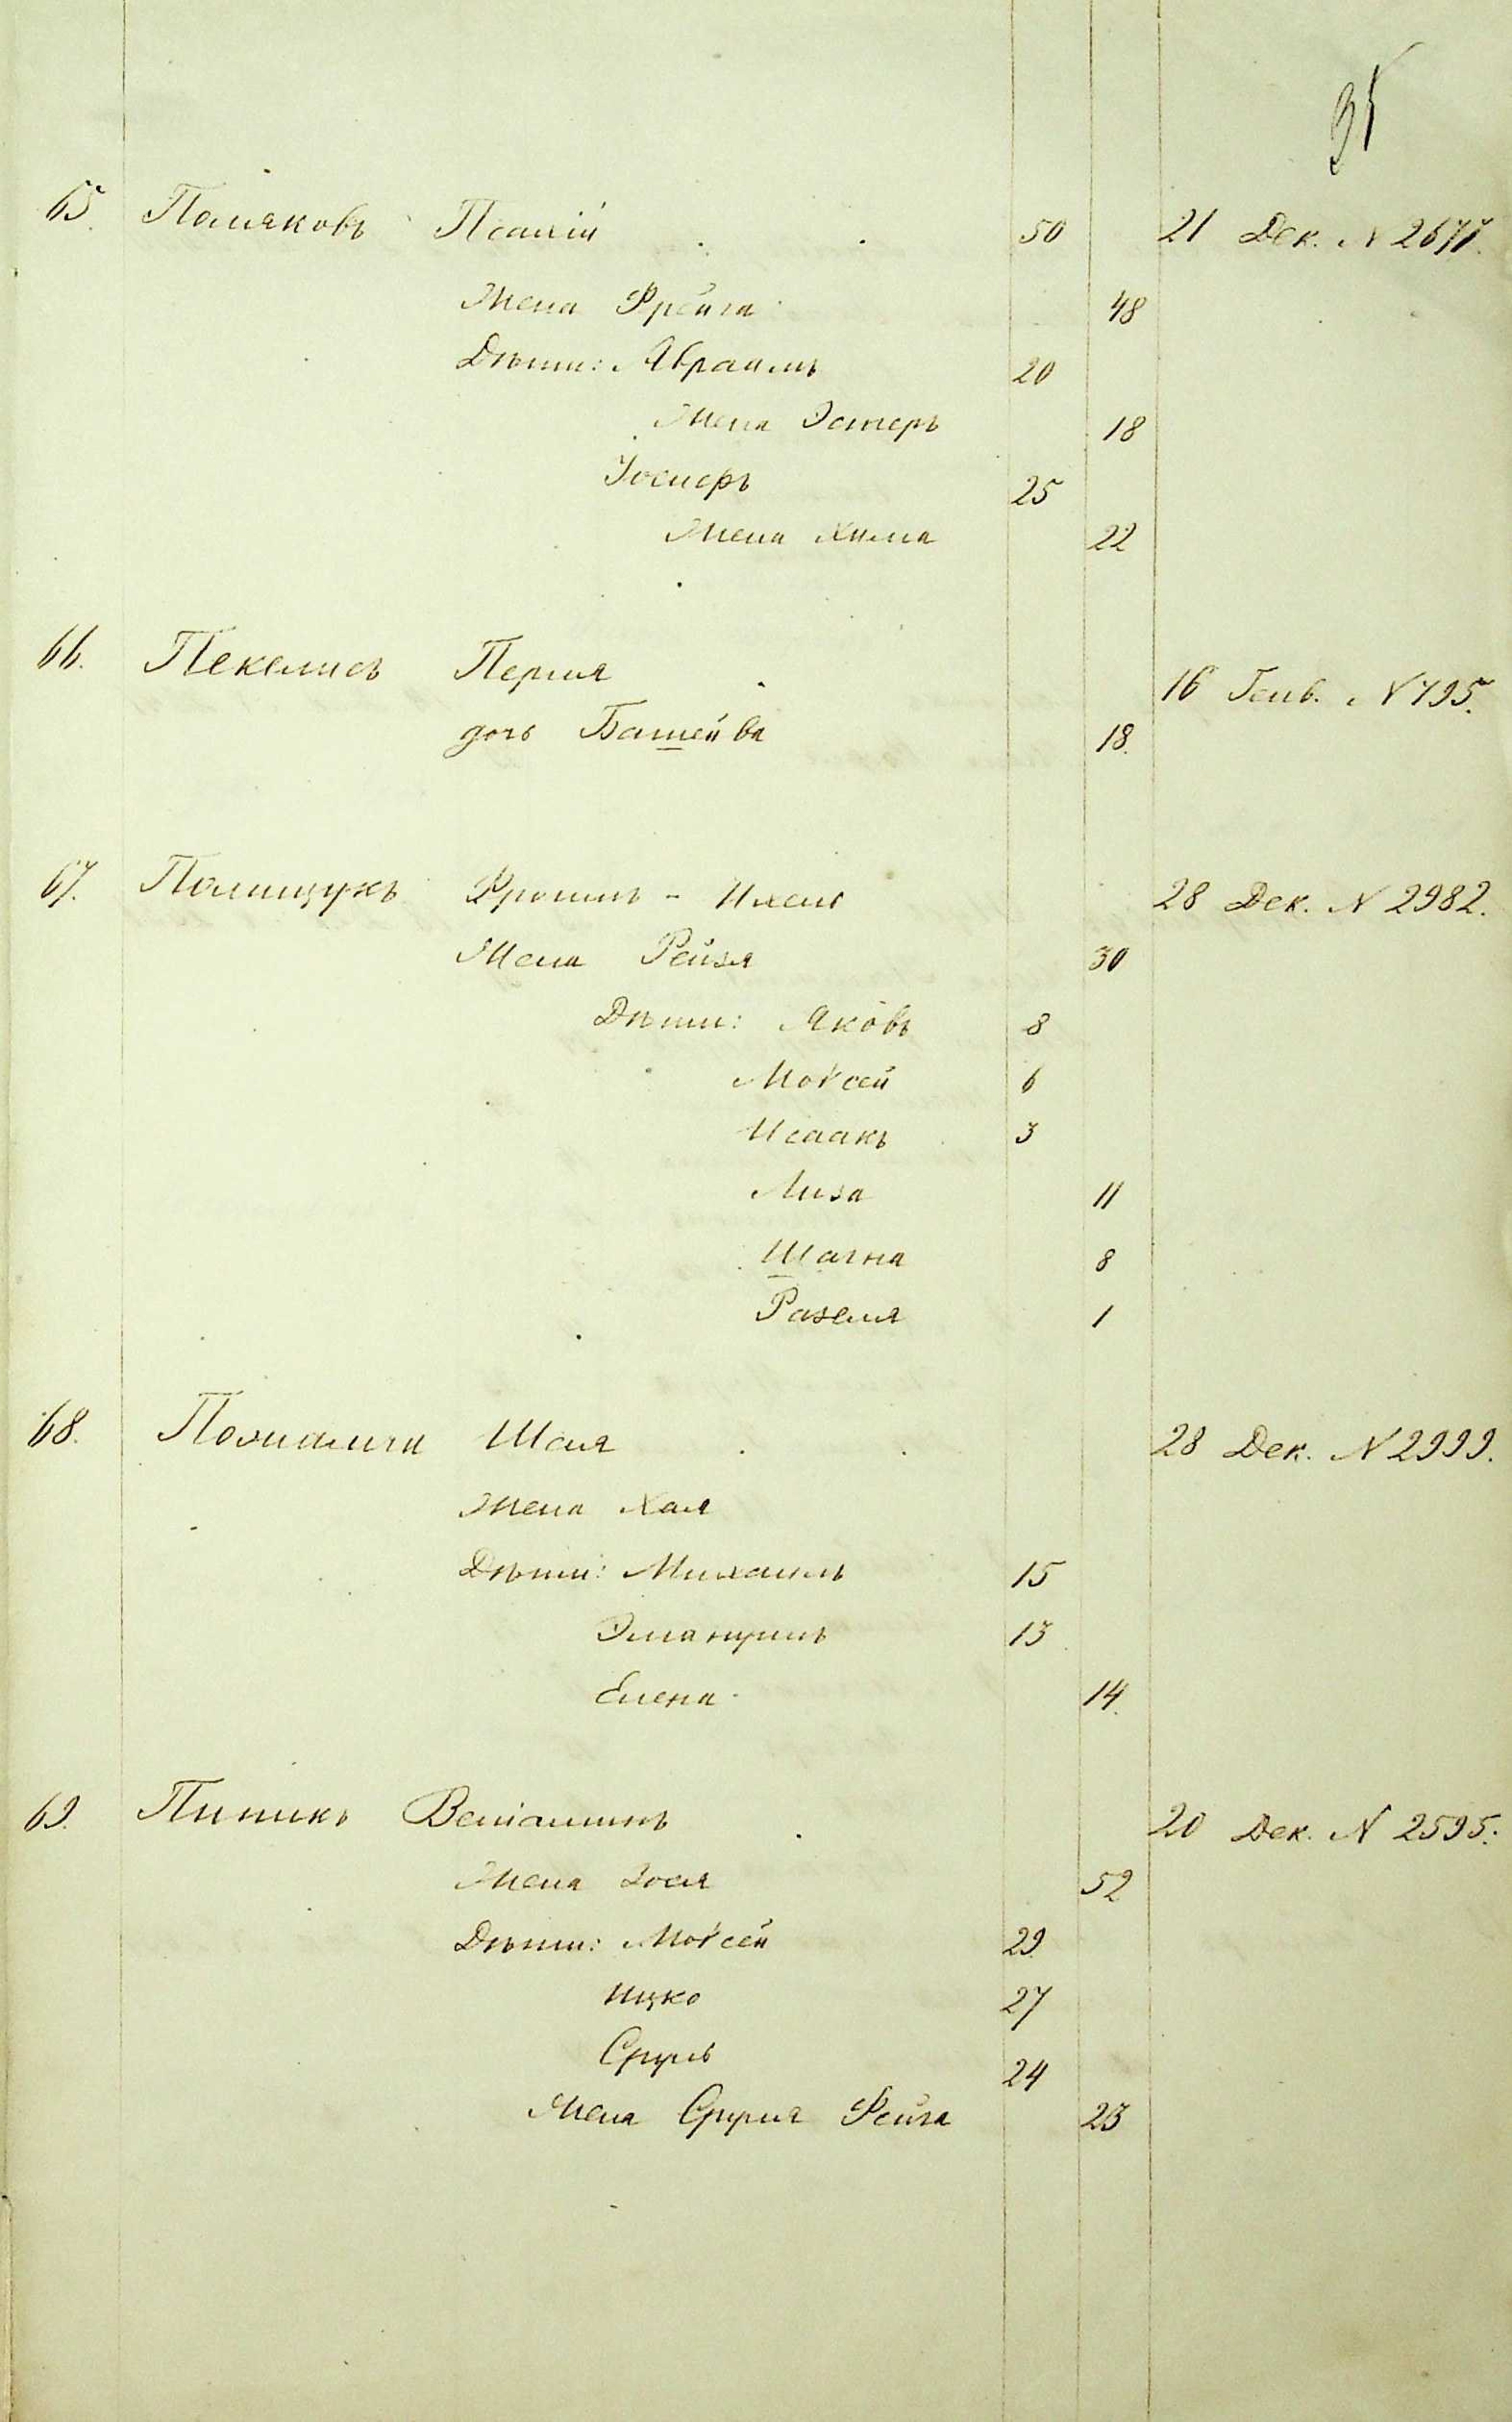 35
65. Поляковъ Псахій 50 21 Дек. N 2677.
Жена Фрейга 48
Дѣти: Абрамъ 20
Жена Эстеръ 18
Іосифъ 25
Жена Хима 22
66. Пекелисъ Перля 16 Генв. N 795.
дочь Башейва 18.
67. Полищукъ Фроимъ - Ихель 28 Дек. N 2982.
Жена Рейзя 30
Дѣти: Яковъ 8
Мойсей 6
Исаакъ 3
Лиза 11
Шагна 8
Разеля 1
68. Шая 28 Дек. N 2999.
Жена Хая
Дѣти: Михаилъ 15
Эмануилъ 13
Елена 14.
69. Пиникъ Веніаминъ 20 Дек. N 2595.
Жена Зося 52
Дѣти: Мойсей 29
Ицко 27
Сруль 24
Жена Сруля Фейга 23